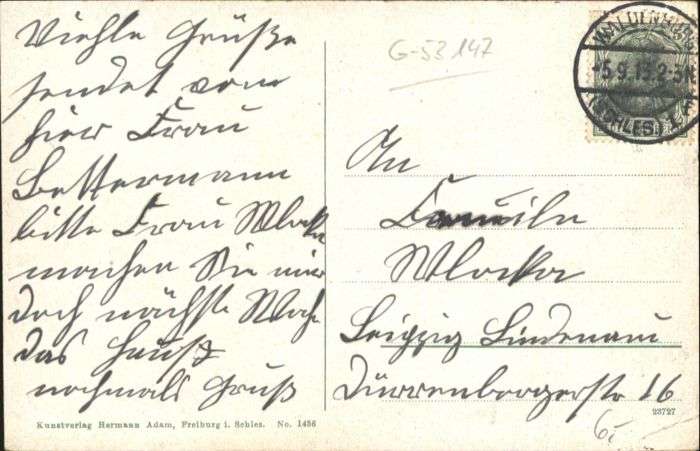 Viehle Grüße
sendet von
hier Frau
Bettermann
bitte Frau Wlocka
machen Sie mir
doch nächste Woche
das Hauß
nochmals Gruß
Kunstverlag Hermann Adam, Freiburg i. Schles. No. 1486
G-53147
WALDENBURG
5.9.15.2-3N
(SCHLES)
An
Familie
Wlocka
Leipzig Lindenau
Dürrenbergerstr 16
23727
6,-